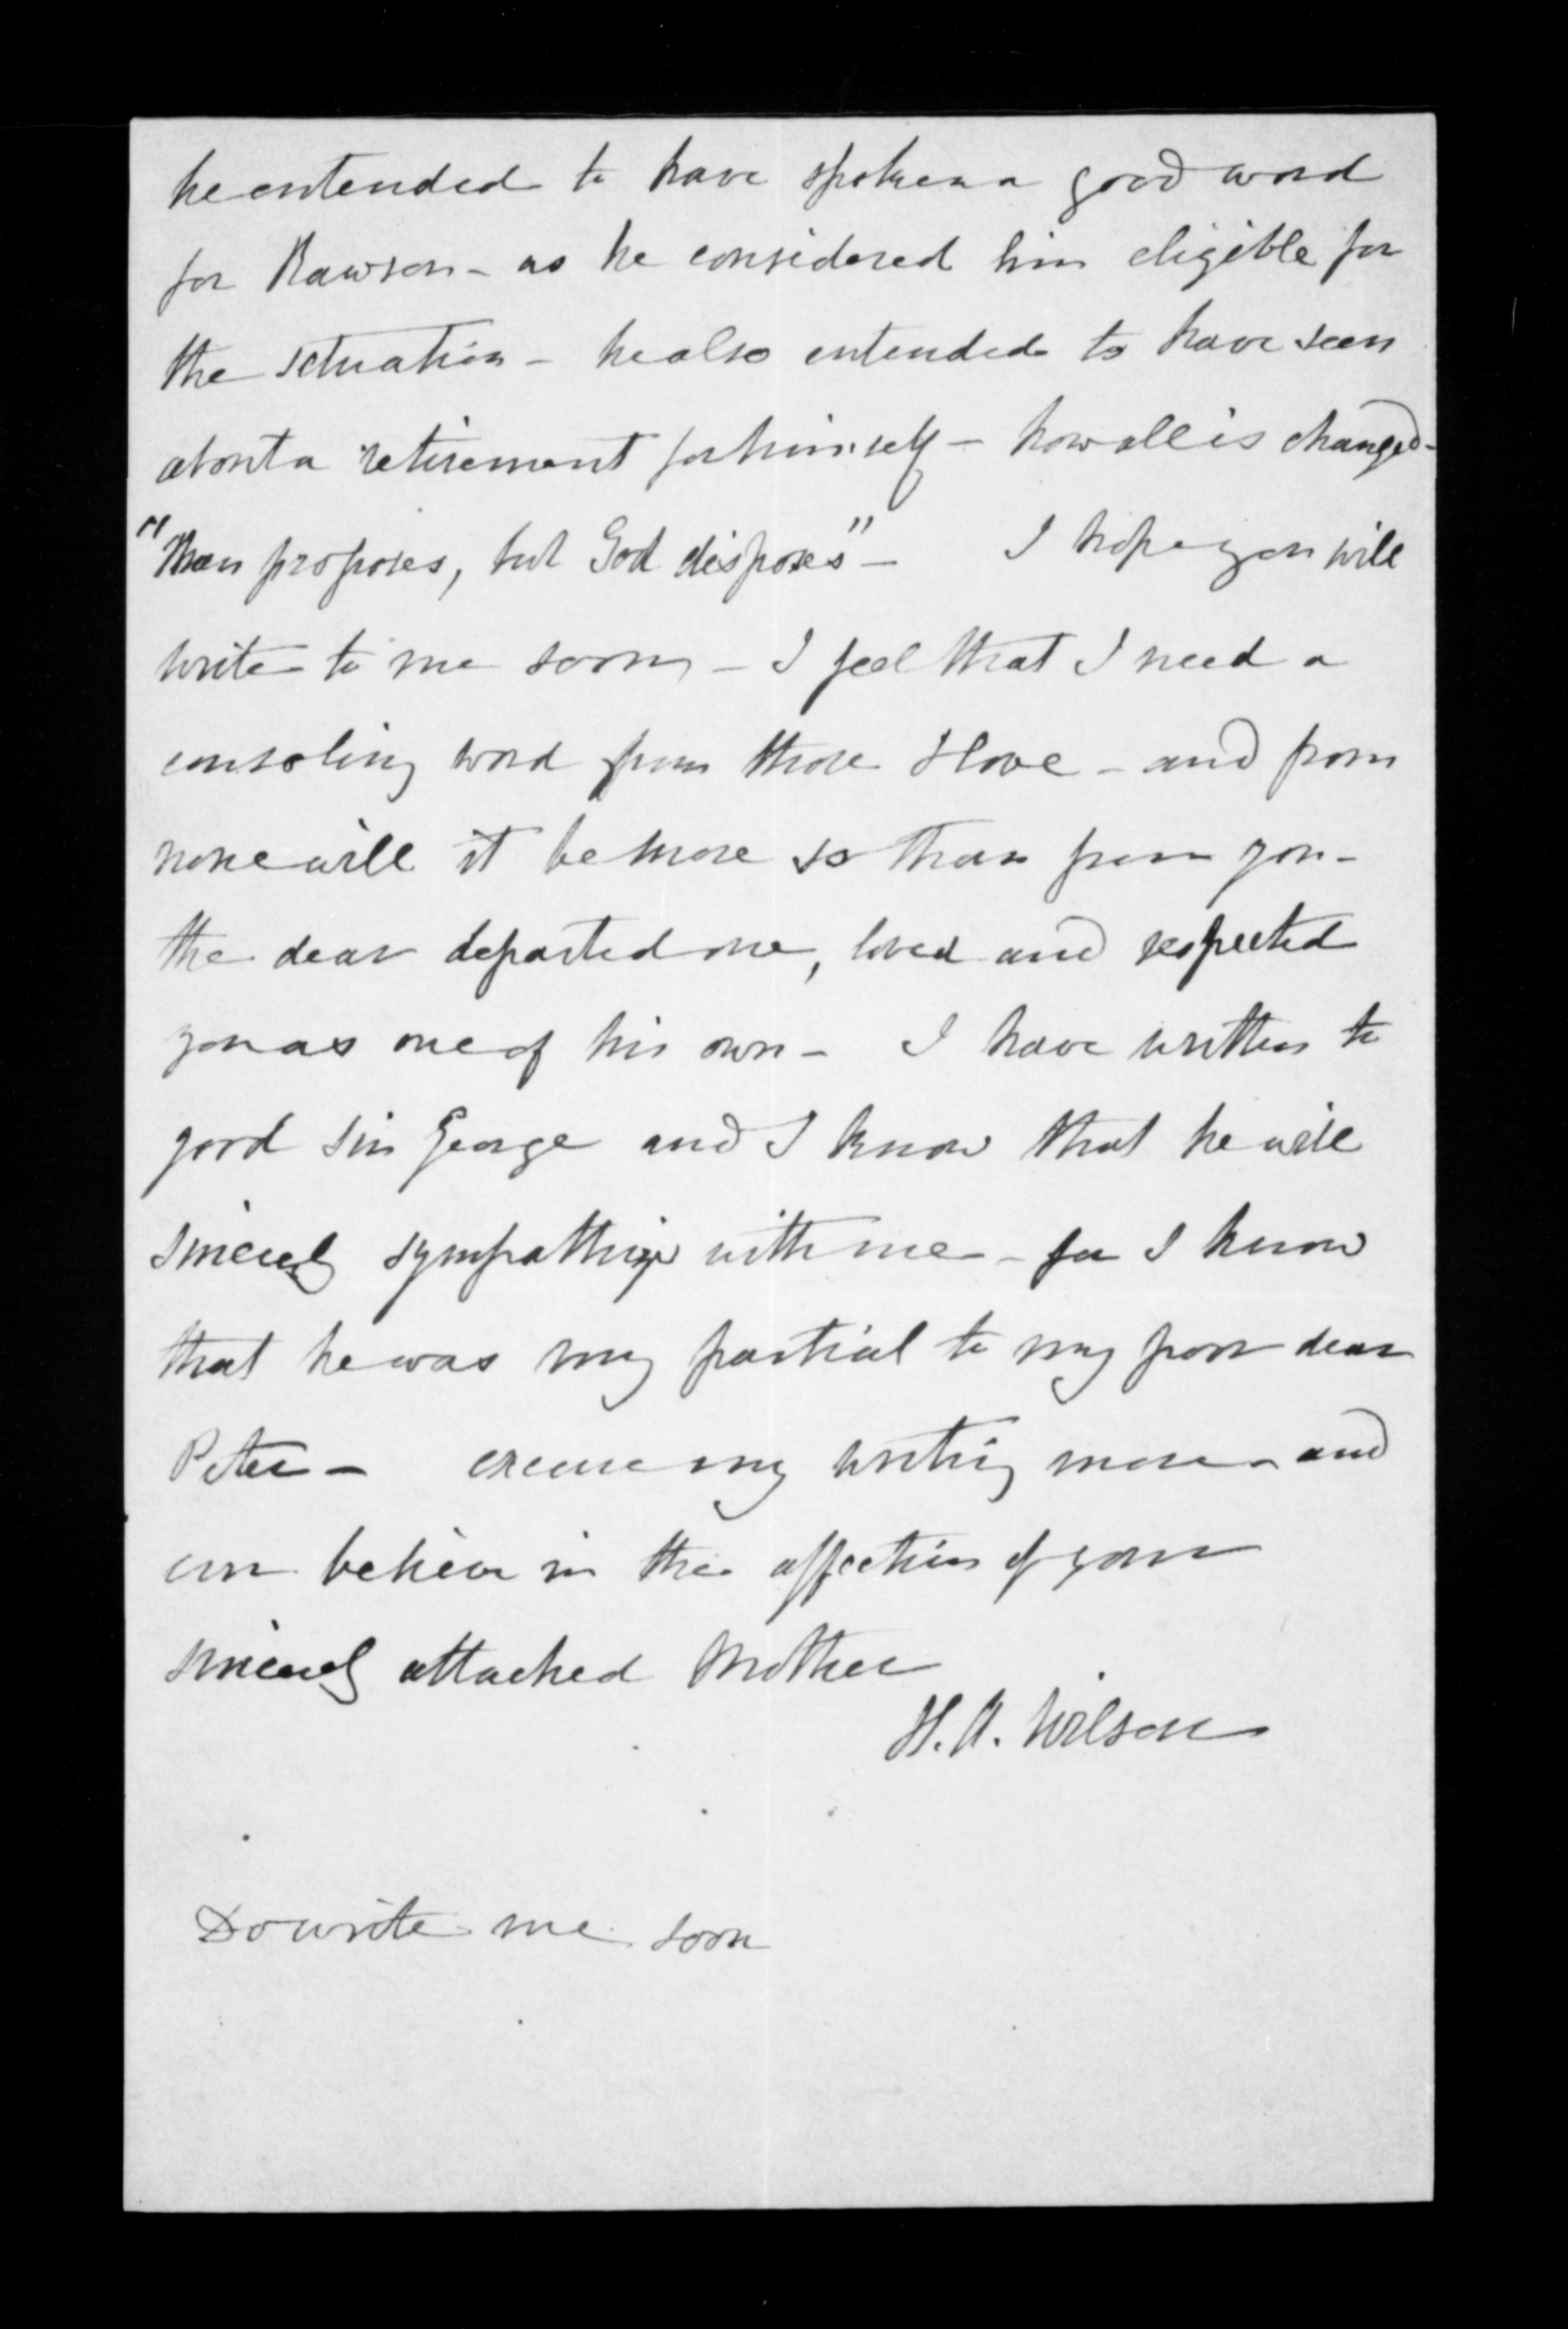 he entended to have spoken a good word
for Rawson - as he considered him eligible for
the situation - he also entended to have seen
about a retirement for himself - how all is changed -
"Man proposes, but God disposes" - I hope you will
write to me soon - I feel that I need a
consoling word from those I love - and from
none will it be more so than from you -
the dear departed one, loved and respected
you as one of his own - I have written to
good Sir George and I know that he will
sincerely sympathize with me - for I know
that he was very partial to my poor dear
Peter - excuse my writing more - and
ever believe in the affection of your
sincerely attached Mother
H. A. Wilson
Do write me soon